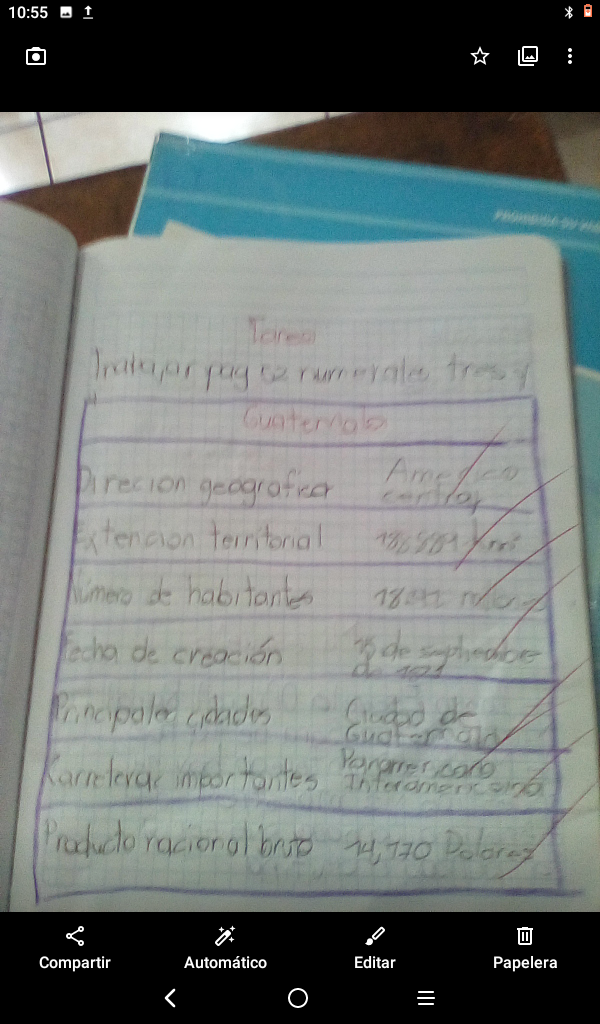 10:55
PROHIBIDA SU
Tarea
Trabajar pag 62 numerales tres y
Guatemala
Direcion geografica America
central
Extencion territorial
Número de habitantes
Fecha de creación de septiembre
de
Principales cidades Ciudad de
Guatemala
Carreteras importantes Panamericana
Interamericana
Producto nacional bruto 14,770 Dolares
Compartir Automático Editar Papelera